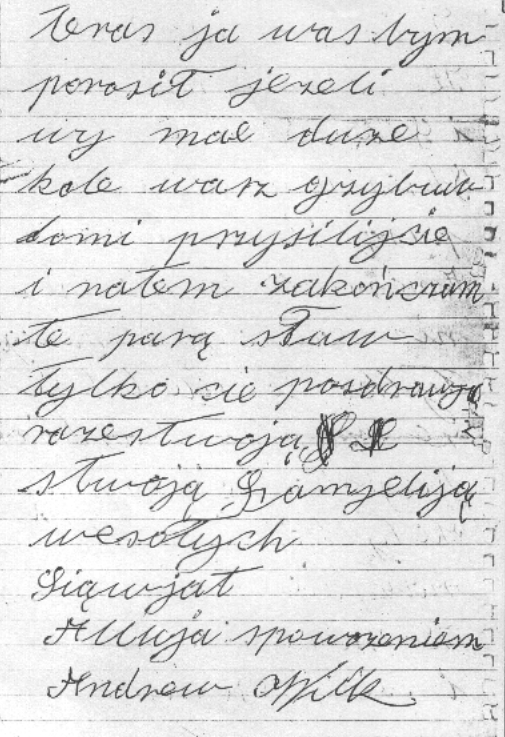 teras ja was bym
porosił jezeli
wy mae duze
kole warz grzybuw
tomi przysilijcie
i natem zakończam
te parą staw
tylko cie pozdrawją
razestwoją
stwoją Famyeliją
wesołych
Siąwjat
Alluja spowozeniem
Andrew Wilk